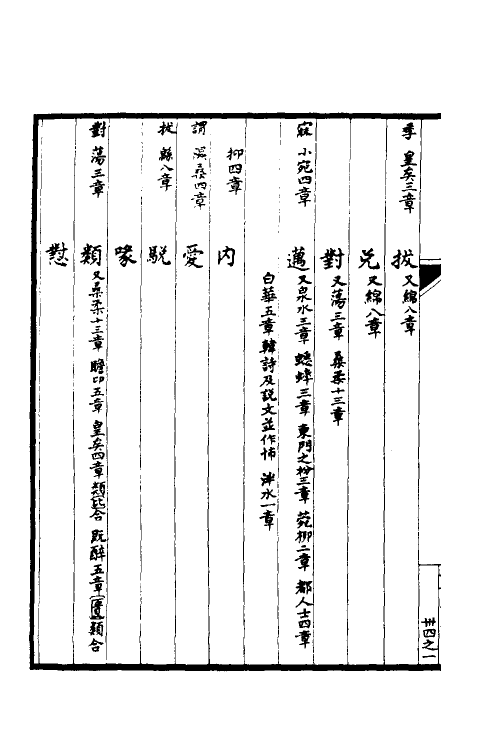 季 皇矣三章 拔 又緜八章
兌 又緜八章
對 又蕩三章 桑柔十三章
寐 小宛四章 邁 又泉水三章 蟋蟀三章 東門之枌三章 菀柳二章 都人士四章
白華五章韓詩及說文並作怖 泮水一章
抑四章 內
謂 隰桑四章 愛
拔 緜八章 駾
喙
對 蕩三章 類 又桑柔十三章 瞻卬五章 皇矣四章類比合 既醉五章匱類合
懟
卅四之一